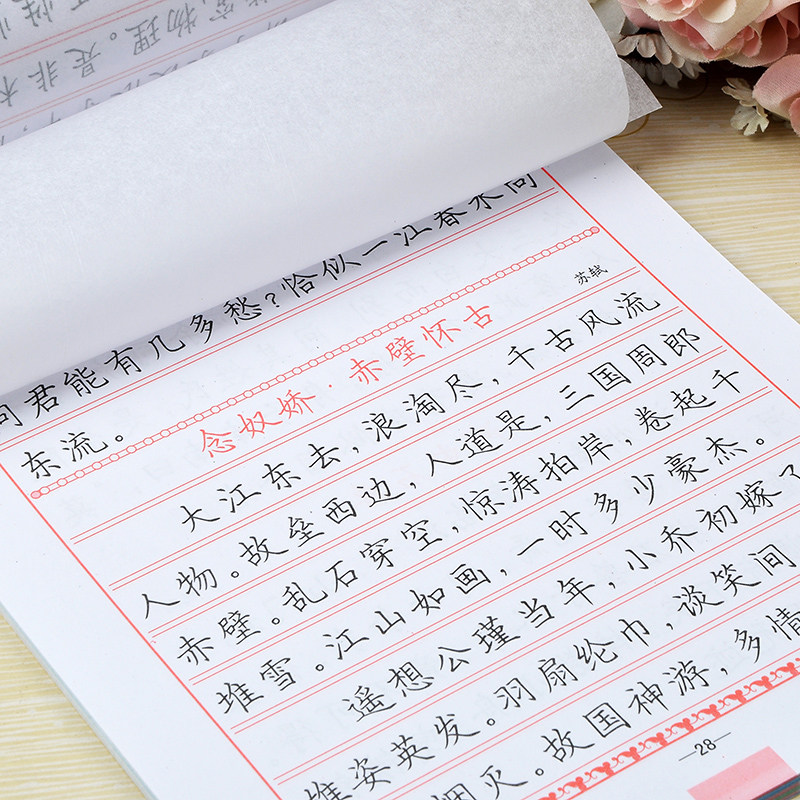 问君能有几多愁?恰似一江春水向
东流。
苏轼
念奴娇·赤壁怀古
大江东去,浪淘尽,千古风流
人物。故垒西边,人道是,三国周郎
赤壁。乱石穿空,惊涛拍岸,卷起千
堆雪。江山如画,一时多少豪杰。
遥想公瑾当年,小乔初嫁了
雄姿英发。羽扇纶巾,谈笑间
烟灭。故国神游,多情
—28—